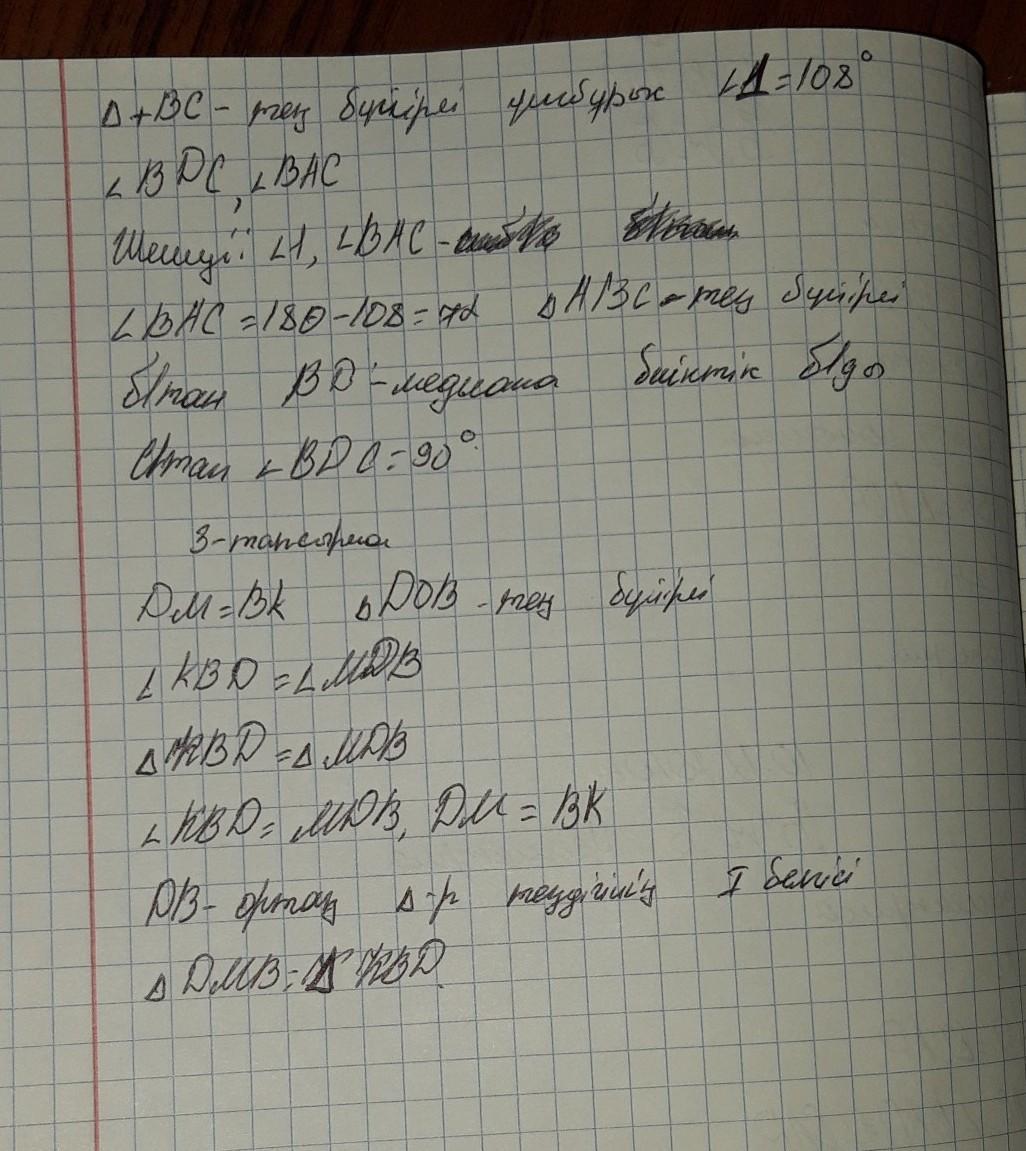 Δ ABC - тең бүйірлі үшбұрыш ∠1=108°
∠BDC, ∠BAC
Шешуі: ∠1, ∠BAC -
∠BAC =180-108=72 ΔABC - тең бүйірлі
б/тан BD -медиана биіктік б/ды
С/тан ∠BDC=90°
3-тапсырма
DM=BK ΔDOB - тең бүйірлі
∠KBD =∠MDB
ΔKBD =ΔMDB
∠KBD= MDB, DM = BK
DB- ортақ Δ-р теңдігінің I белгісі
ΔDMB=Δ KBD.